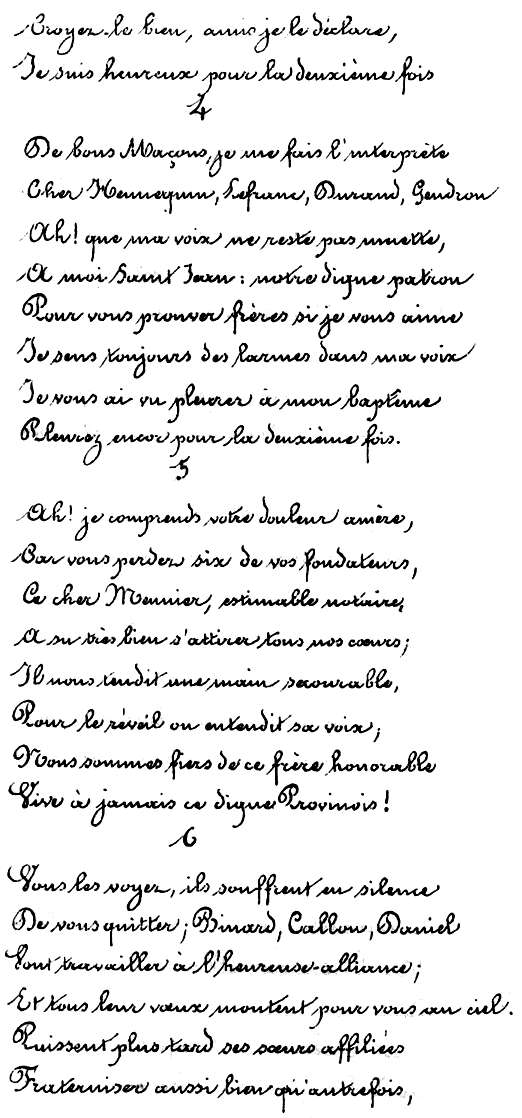 Croyez-le bien, amis je le déclare,
Je suis heureux pour la deuxième fois
4
De bons Maçons, je me fais l'interprète
Cher Hennequin, Lefranc, Durand, Gendron
Ah! que ma voix ne reste pas muette,
A moi Saint Jean: notre digne patron
Pour vous prouver frères si je vous aime
Je sens toujours des larmes dans ma voix
Je vous ai vu pleurer à mon baptême
Pleurez encor pour la deuxième fois.
5
Ah! je comprends votre douleur amère,
Car vous perdez six de vos fondateurs,
Ce cher Meunier, estimable notaire,
A su très bien s'attirer tous nos cœurs;
Il nous tendit une main secourable,
Pour le réveil on entendit sa voix;
Nous sommes fiers de ce frère honorable
Vive à jamais ce digne Provinois!
6
Vous les voyez, ils souffrent en silence
De vous quitter; Binard, Callon, Daniel
Vont travailler à l'heureuse-alliance;
Et tous leur vœux montent pour vous au ciel.
Puissent plus tard ses sœurs affiliées
Fraterniser aussi bien qu'autrefois,